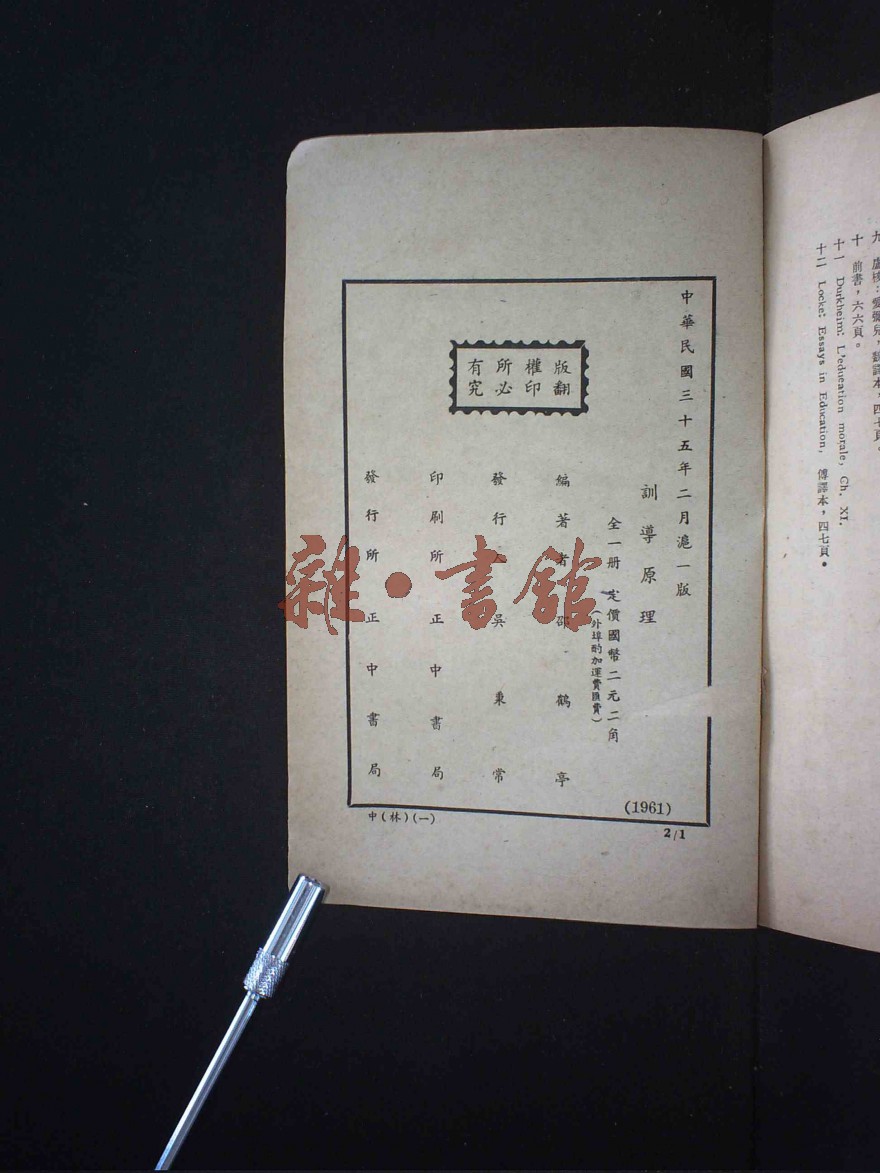 九 盧梭：愛彌兒，魏譯本，四七頁。
十 前書，六六頁。
十一 Durkheim: L'education morale, Ch. XI.
十二 Locke: Essays in Education, 傅譯本，四七頁。
中華民國三十五年二月滬一版
訓導原理
全一册 定價國幣二元二角
（外埠酌加運費匯費）
版權所有
翻印必究
編著者 邵鶴亭
發行人 吳秉常
印刷所 正中書局
發行所 正中書局
(1961)
中(林)(一)
2/1
雜・書館